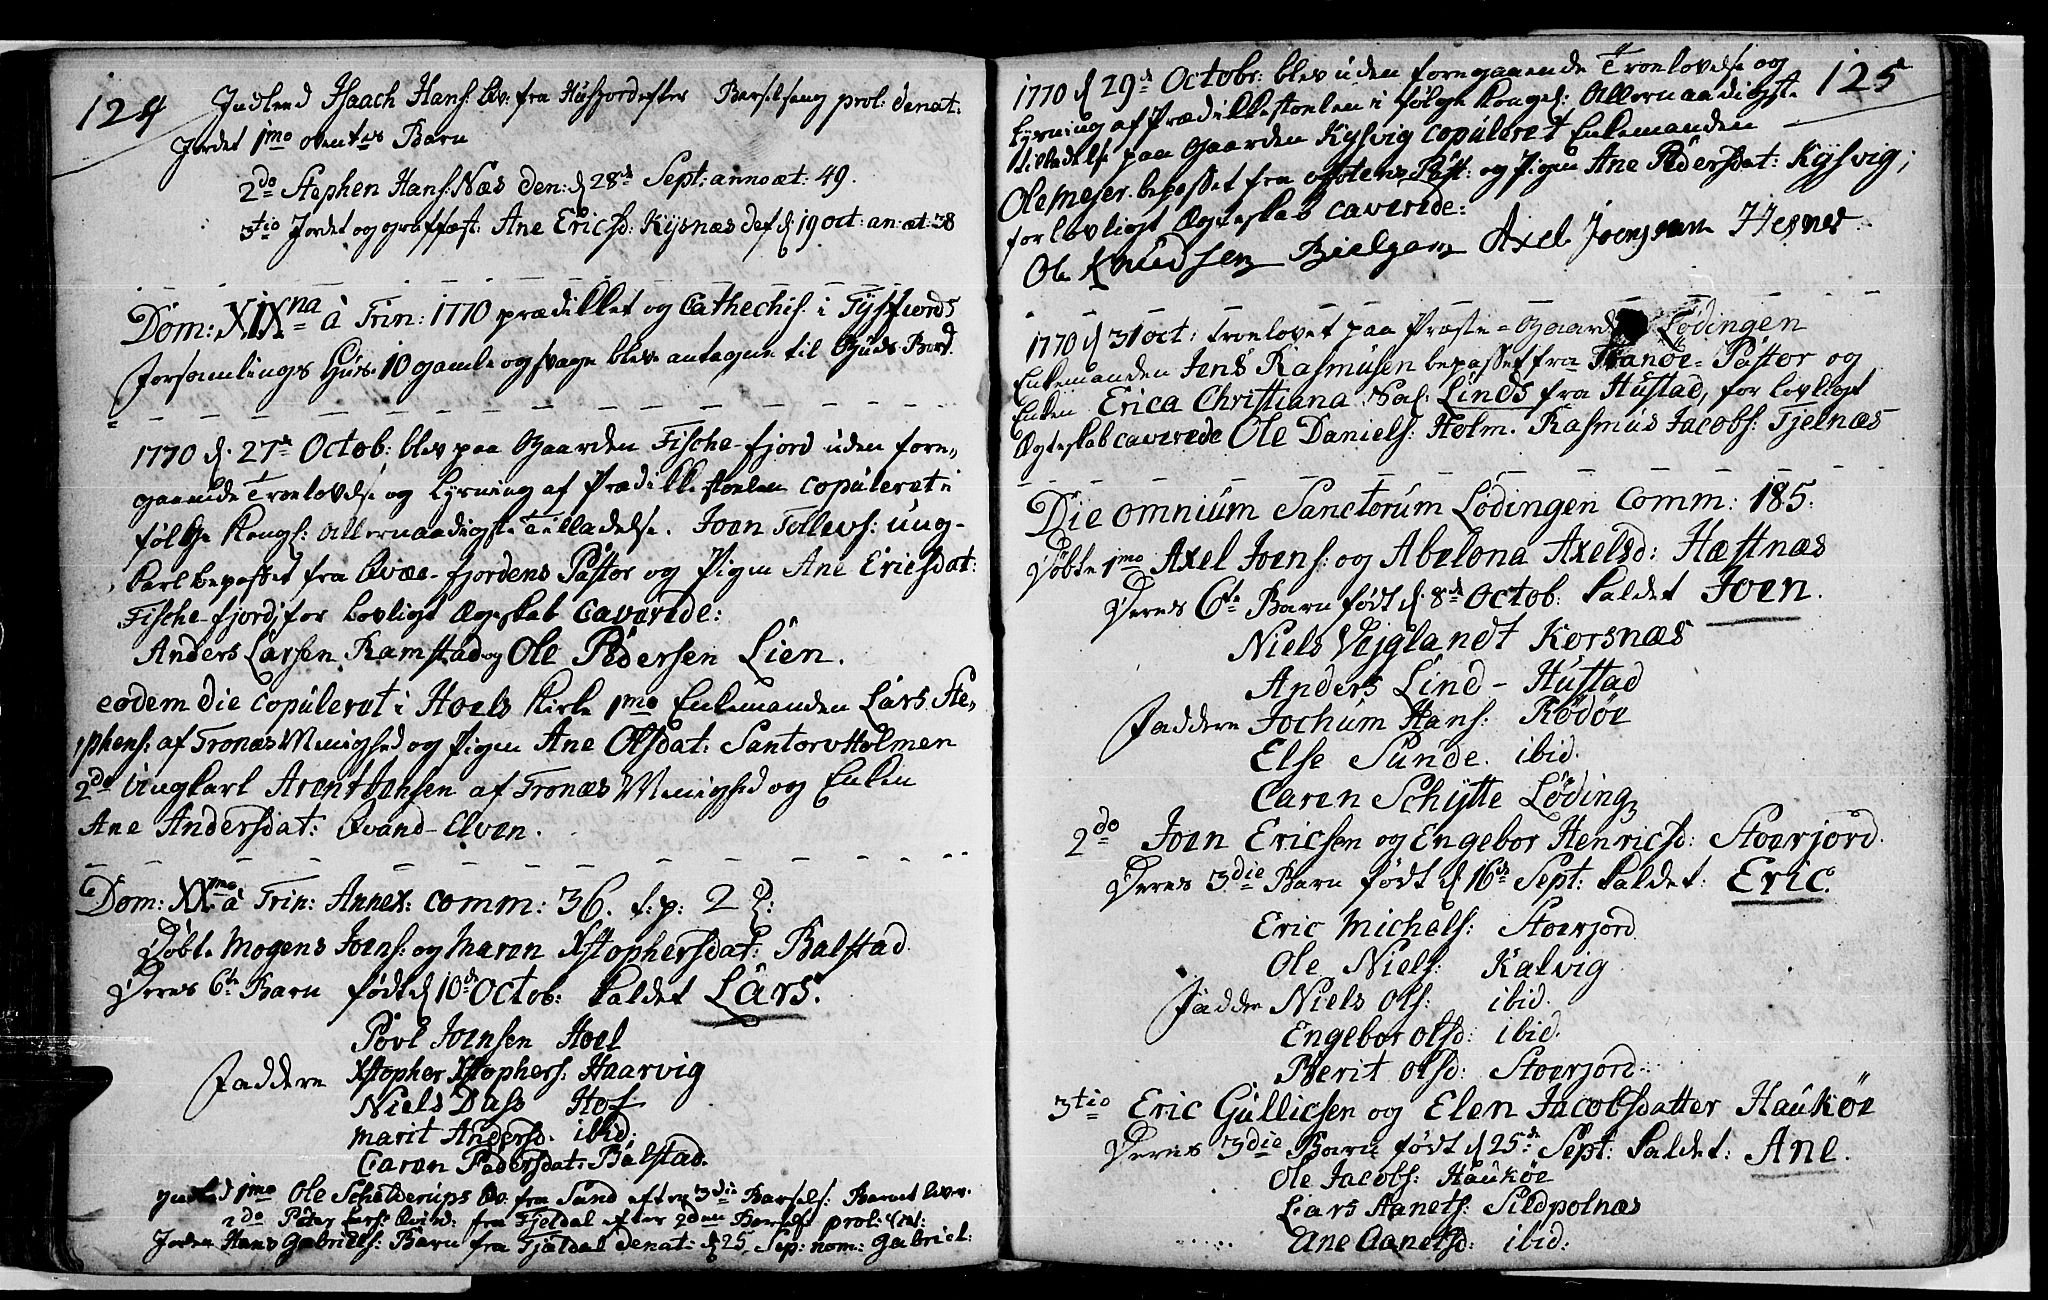 124
Indleed Isaach Hans: Qv: fra Husfjord efter Barselseng prol: denat:
Jordet 1mo ovent:s Barn
2do Stephen Hans: Næs den: d 28de Sept: anno æt: 49.
3tio Jordet og graffæst: Ane Ericsd: Kysnæs def d: 19 oct: an: æt: 38
Dom: XIXna à Trin: 1770 prædikket og Cathechis: i Tysfiords
forsamlings Huus. 10 gamle og svage blev antagne til Guds Bord.
1770 d. 27de Octob: blev paa Gaarden Fische-fjord uden fore-
gaaende Troelovelse og Lysning af Prædikkestoelen copuleret i
følge Kongl: Allernaadigste Tilladelse. Joen Tollevs: ung-
karl bepasset fra Qvæe-fjordens Pastor og Pigen Ane Ericsdat:
Fische-fjord; for lovligt Ægteskab caverede:
Anders Larsen Ramstad og Ole Pedersen Lien.
eodem die copuleret i Hoels Kirke 1mo Enkemanden Lars Ste-
phens: af Tronæs Menighed og Pigen Ane Olsdat: Santorvholmen
2do Ungkarl Arent Jensen af Tronæs Menighed og Enken
Ane Andersdat: Qvand-Elven.
Dom: XXma à Trin: Annex: comm: 36. s: p: 2
Døbte Mogens Joens: og Maren Xstophersdat: Balstad
Deres 6te Barn født d 10de Octob: kaldet Lars.
Povl Joensen Hoel
Faddere Xstopher Xstophers: Haarvig
Niels Dass Hof
Marit Andersd: ibid:
Caren Pedersdat: Balstad.
Indleed 1mo Ole Schelderups Qv: fra Sund efter 3die Barsels: Barnet lever.
2do Peter Lars: Qvind: fra Fjeldal efter 2den Barsels: prol:
Jordet Hans Gabriels: Barn fra Fjældal denat: d 25 Sep: nom: Gabriel:
125
1770 d 29de Octobr: blev uden foregaaende Troelovelse og
Lysning af Prædikkestoelen i følge Kongel: Allernaadigste
tilladelse paa Gaarden Kysvig copuleret Enkemanden
Ole Mejer bepasset fra Ofotens Past: og Pigen Ane Pedersdat: Kysvig;
for lovligt Ægteskab caverede:
Ole Knudsen Axel Joensen Hesnes
1770 d 31 oct: Troelovet paa Præste-Gaarden Lødingen
Enkemanden Jens Rasmusen bepasset fra Tranøe-Pastor og
Enken Erica Christiana Sal: Linds fra Hustad, for lovligt
Ægteskab caverede Ole Daniels: Holm. Rasmus Jacobs: Tjelnæs
Die omnium Sanctorum Lødingen Comm: 185.
Døbte 1mo Axel Joens: og Abelona Axelsd: Hæstnæs
Deres 6te Barn født d. 8de Octob: kaldet Joen.
Niels Vejglandt Korsnæs
Anders Lind - Hustad
Faddere Jochum Hans: Rødøe
Else Sunde. ibid.
Caren Schytte Løding
2do Joen Ericsen og Engebor Henricsd: Stoerjord.
Deres 3die Barn født d 16de Sept: kaldet: Eric.
Eric Michels: Stoerjord
Ole Niels: Kalvig
Faddere Niels Ols: ibid.
Engebor Olsd: ibid.
Berit Olsd: Stoerjord:
3tio Eric Gullicsen og Elen Jacobsdatter Haukøe
Deres 3die Barn født d 25de Sept: kaldet: Ane.
Ole Jacobs: Haukøe
Lars Aanets: Sildpolnæs
Ane Aanetsd: ibid: